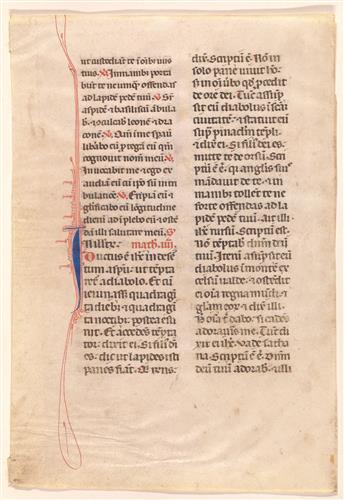 ut custodiant te i omib uiis
tuis. V In manib porta
bunt te ne unq offendas
ad lapide pede tuu V Sr
aspide & basiliscu abula
b & cculcab leone & dra
cone. V Qm i me spau
libabo eu ptega eu qm
cognouit nom meu. V
Inuocabit me & ego ex
audia eu cu ipo su in m
bulatione. V Eripia eu &
glificabo eu longitudine
dieru ad iplebo eu & oste
da illi salutare meu. S
matheu. iiii.
Ductus e ihc in deser
tum a spu ut tepta
ret a diabolo. Et cu
ieiunass quadragi
ta dieb & quadragi
ta noctib postea esu
riit. Et accedens tepta
tor dixit ei. Si fili di
es. dic ut lapides isti
panes fiat. Q rens
dix. Scriptu e. No in
solo pane uiuit ho.
si in oi ubo qd pcedit
de ore dei. Tuc assup
sit eu diabolus i scam
ciuitate & statuit eu
sup pinaclm tepli.
& dix ei. Si fili dei es.
mitte te deorsu. Scp
tu e. q anglis suis
mandauit de te & in
manib tollet te ne
forte offendas ad la
pide pede tuu. ait il
li ihc rursu. Scriptu est
no teptab dnm dm
tuu. Iteru assupsit eu
diabolus i monte ex
celsu ualde. & ostedit
ei oia regna mudi &
glam eor & dix illi.
H oia t dabo. si cades
adorauis me. Tuc di
xit ei ihc. Vade satha
na. Scriptu e. Dnm
deu tuu adorab & illi